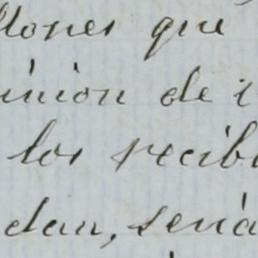 llones que
inion de i
los recib
dan, sería